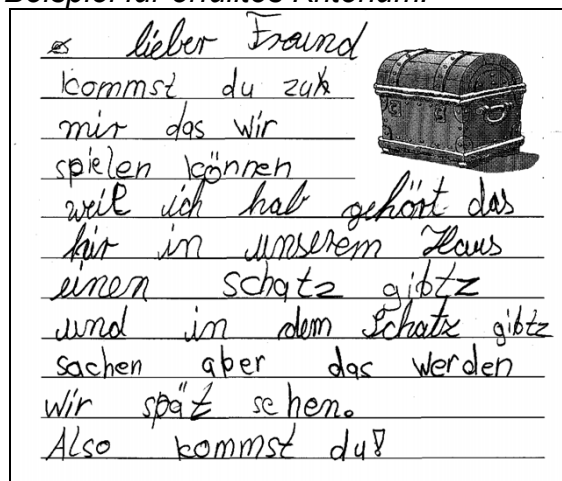 Beispiel für erfülltes Kriterium:
lieber Freund
kommst du zuk
mir das wir
spielen können
weil ich hab gehört das
hir in unserem Haus
einen schatz gibtz
und in dem Schatz gibtz
sachen aber das werden
wir spät sehen.
Also kommst du?